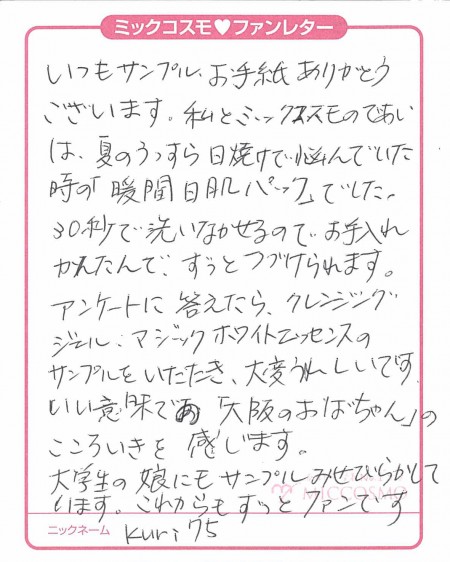 ミックコスモ♥ファンレター
いつもサンプル、お手紙ありがとう
ございます。私とミックコスモのであい
は、夏のうっすら日焼けで悩んでいた
時の「瞬間白肌パック」でした。
30秒で洗いながせるのでお手入れ
かんたんで、ずっとつづけられます。
アンケートに答えたら、クレンジング
ジェル、マジックホワイトエッセンスの
サンプルをいただき、大変うれしいです。
いい意味で「大阪のおばちゃん」の
こころいきを感じます。
大学生の娘にもサンプルみせびらかして
います。これからもずっとファンです
MICCOSMO
ニックネーム kuri75